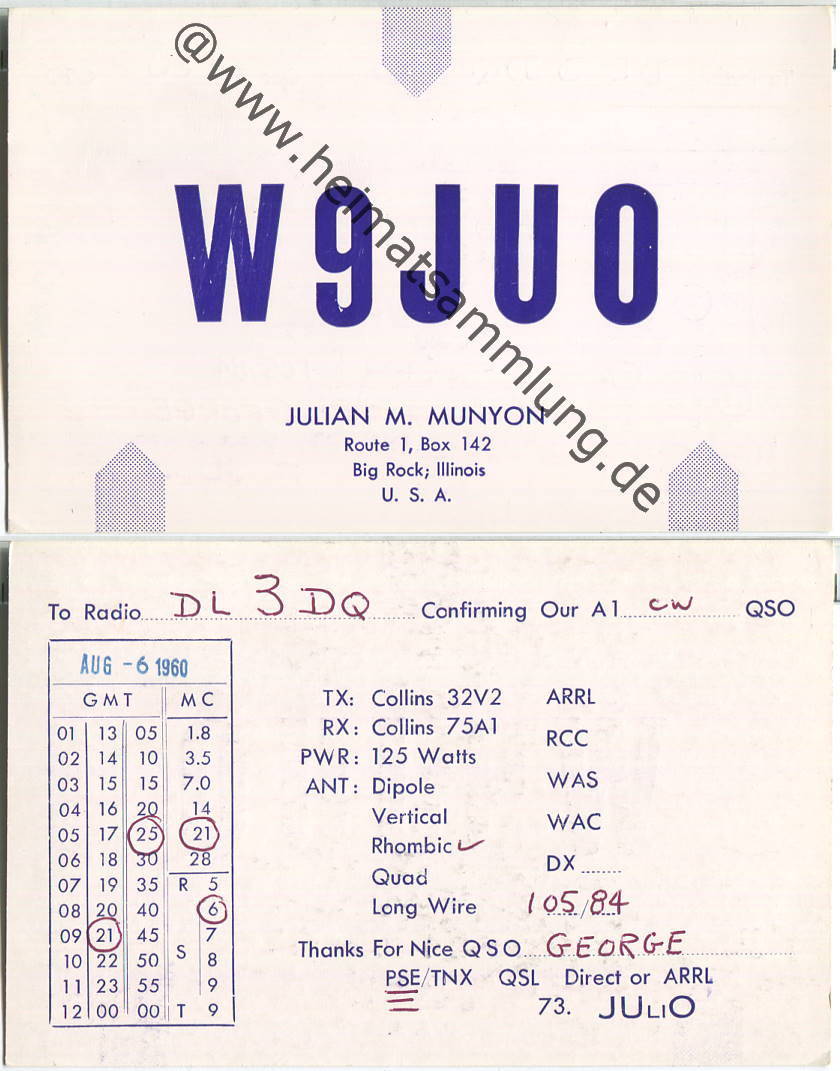 @www.heimatsammlung.de
W9JUO
JULIAN M. MUNYON
Route 1, Box 142
Big Rock; Illinois
U. S. A.
To Radio DL3DQ Confirming Our A1 CW QSO
AUG -6 1960
GMT MC
01 13 05 1.8
02 14 10 3.5
03 15 15 7.0
04 16 20 14
05 17 25 21
06 18 30 28
07 19 35 R 5
08 20 40 6
09 21 45 7
10 22 50 S 8
11 23 55 9
12 00 00 T 9
TX: Collins 32V2 ARRL
RX: Collins 75A1 RCC
PWR: 125 Watts
ANT: Dipole WAS
Vertical WAC
Rhombic ✓
Quad DX
Long Wire 105/84
Thanks For Nice QSO GEORGE
PSE/TNX QSL Direct or ARRL
73. JULIO